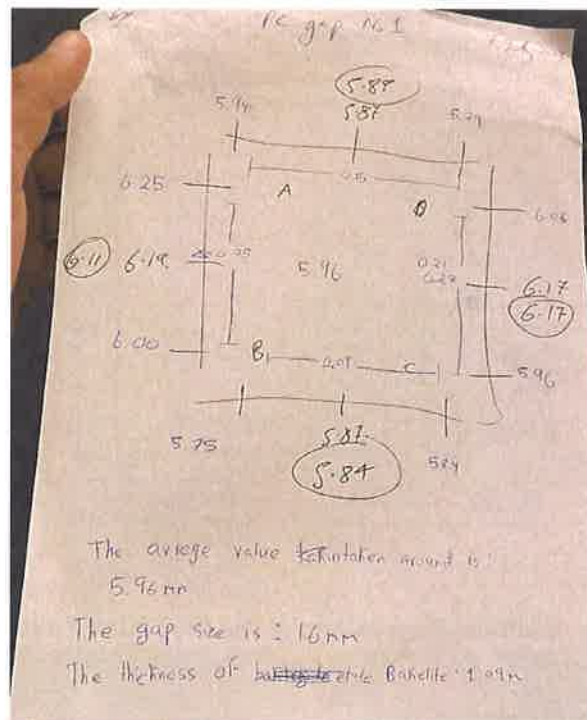 PC gap No 1
5.88
5.94 5.87 5.79
6.25 A D
6.11 6.19 5.96 0.21 6.17
6.17
6.00 B 0.09 C 5.96
5.75 5.87
5.84
The avrege value taken around is:
5.96 mm
The gap size is: 16mm
The thickness of Bakelite